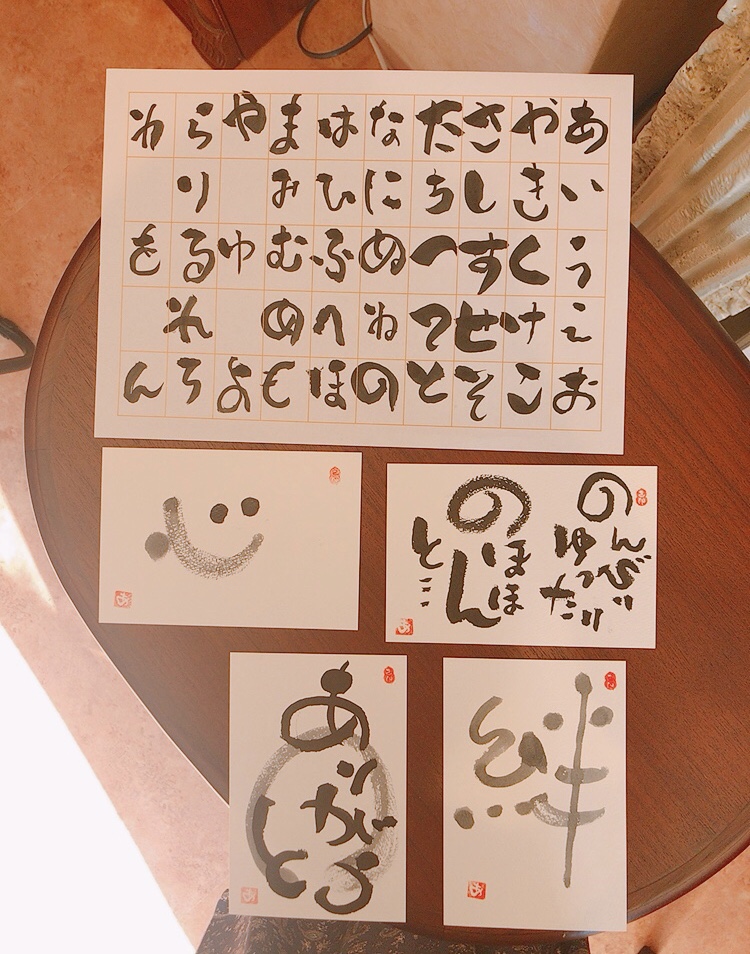 あいうえお
かきくけこ
さしすせそ
たちつてと
なにぬねの
はひふへほ
まみむめも
やゆよ
らりるれろ
わをん
心
のんびり
ゆったり
のほほん
と…
ありがとう
絆